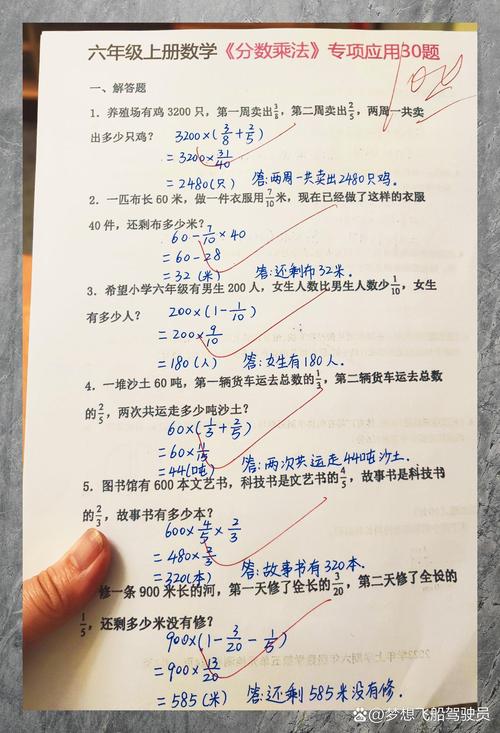 六年级上册数学《分数乘法》专项应用30题
100
一、解答题
1. 养殖场有鸡 3200 只，第一周卖出3/8，第二周卖出2/5，两周一共卖
出多少只鸡？ 3200×(3/8+2/5)
=3200×31/40
=2480(只) 答：两周一共卖出2480只鸡.
2. 一匹布长 60 米，做一件衣服用7/10米，现在已经做了这样的衣服
40 件，还剩布多少米？
60-7/10×40
=60-28
=32(米) 答：还剩布32米.
3. 希望小学六年级有男生 200 人，女生人数比男生人数少1/10，女生
有多少人？ 200×(1-1/10)
=200×9/10
=180(人) 答：女生有180人.
4. 一堆沙土 60 吨，第一辆货车运去总数的1/3，第二辆货车运去总数
的2/5，两次共运走多少吨沙土？
60×(1/3+2/5)
=60×11/15
=44(吨) 答：两次共运走44吨沙土.
5. 图书馆有 600 本文艺书，科技书是文艺书的4/5，故事书是科技书
的2/3，故事书有多少本？
600×4/5×2/3
=480×2/3
=320(本) 答：故事书有320本.
修一条 900 米长的河，第一天修了全长的3/20，第二天修了全长的
1/5，还剩多少米没有修？
900×(1-3/20-1/5)
=900×13/20
=585(米) 答：还剩585米没有修.
@梦想飞船驾驶员